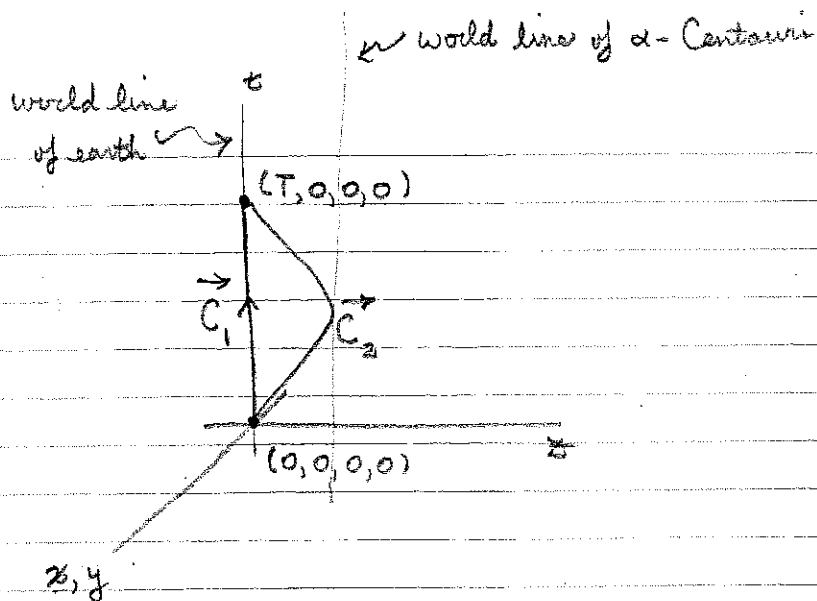 world line of α-Centauri
t
world line
of earth
(T,0,0,0)
C₁
C₂
(0,0,0,0)
z
x, y